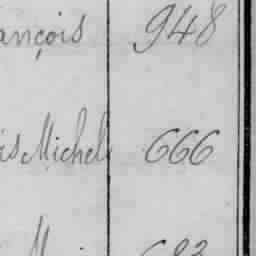 ançois 948
is Michel 666